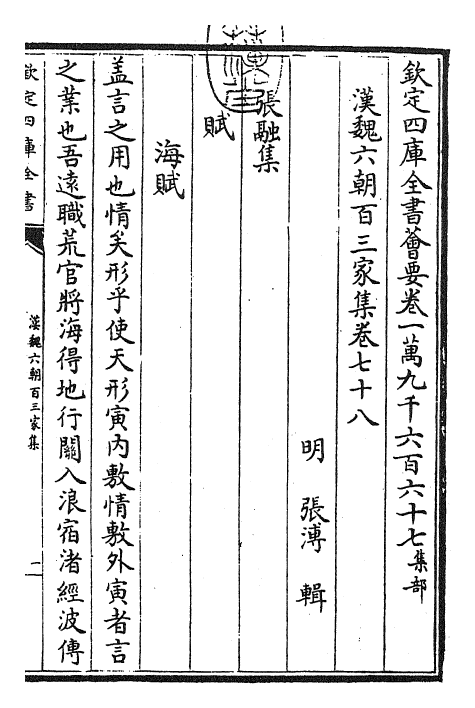 欽定四庫全書薈要卷一萬九千六百六十七集部
漢魏六朝百三家集卷七十八
明 張溥 輯
張融集
賦
海賦
盖言之用也情矣形乎使天形寅内敷情敷外寅者言
之業也吾遠職荒官將海得地行關入浪宿渚經波傳
欽定四庫全書
漢魏六朝百三家集